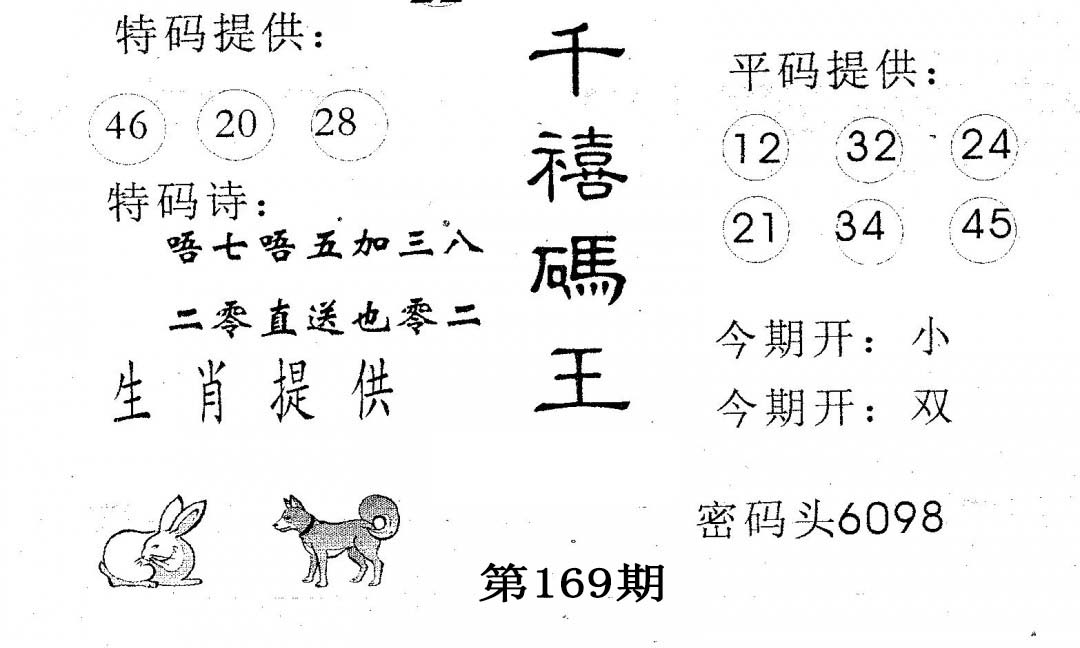 特码提供：
46 20 28
特码诗：
唔七唔五加三八
二零直送也零二
生肖提供
千禧碼王
第169期
平码提供：
12 32 24
21 34 45
今期开：小
今期开：双
密码头6098